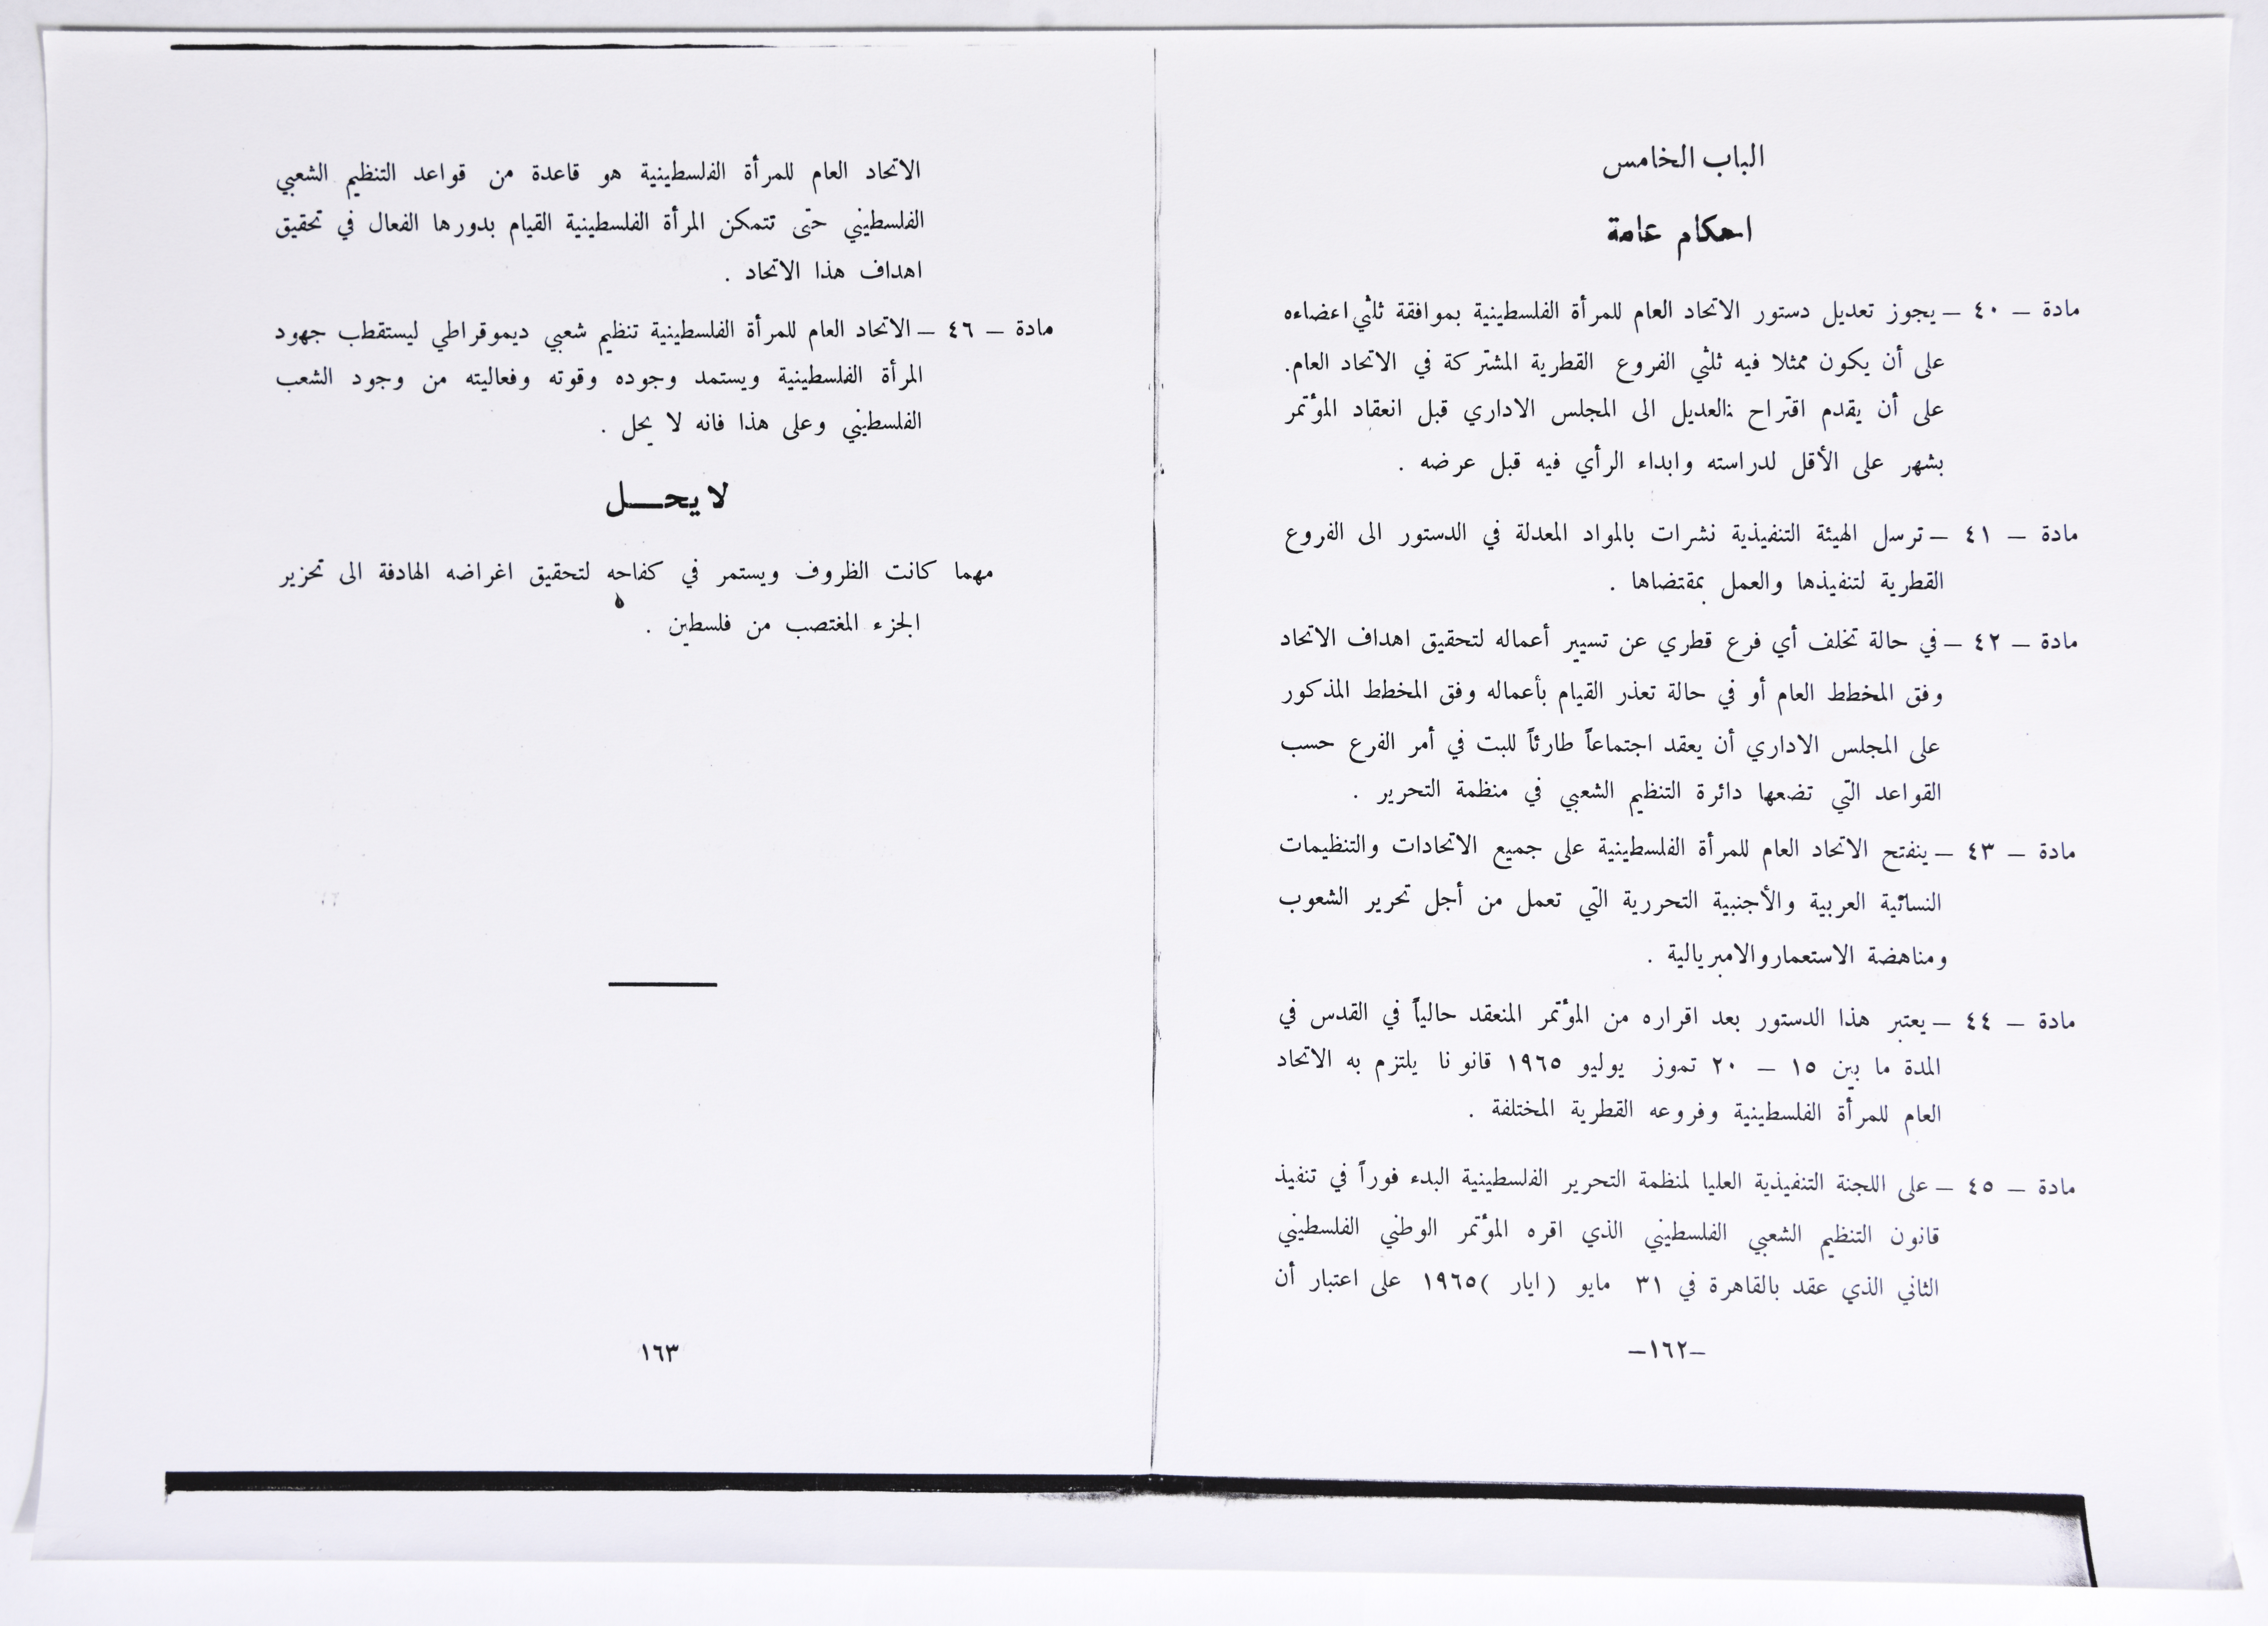 الباب الخامس
احكام عامة
مادة — ٤٠ — يجوز تعديل دستور الاتحاد العام للمرأة الفلسطينية بموافقة ثلثي اعضاءه
على أن يكون ممثلا فيه ثلثي الفروع القطرية المشتركة في الاتحاد العام.
على أن يقدم اقتراح العديل الى المجلس الاداري قبل انعقاد المؤتمر
بشهر على الأقل لدراسته وابداء الرأي فيه قبل عرضه .
مادة — ٤١ — ترسل الهيئة التنفيذية نشرات بالمواد المعدلة في الدستور الى الفروع
القطرية لتنفيذها والعمل بمقتضاها .
مادة — ٤٢ — في حالة تخلف أي فرع قطري عن تسيير أعماله لتحقيق اهداف الاتحاد
وفق المخطط العام أو في حالة تعذر القيام بأعماله وفق المخطط المذكور
على المجلس الاداري أن يعقد اجتماعاً طارئاً للبت في أمر الفرع حسب
القواعد التي تضعها دائرة التنظيم الشعبي في منظمة التحرير .
مادة — ٤٣ — ينفتح الاتحاد العام للمرأة الفلسطينية على جميع الاتحادات والتنظيمات
النسائية العربية والأجنبية التحررية التي تعمل من أجل تحرير الشعوب
ومناهضة الاستعمار والامبريالية .
مادة — ٤٤ — يعتبر هذا الدستور بعد اقراره من المؤتمر المنعقد حالياً في القدس في
المدة ما بين ١٥ — ٢٠ تموز يوليو ١٩٦٥ قانونا يلتزم به الاتحاد
العام للمرأة الفلسطينية وفروعه القطرية المختلفة .
مادة — ٤٥ — على اللجنة التنفيذية العليا لمنظمة التحرير الفلسطينية البدء فوراً في تنفيذ
قانون التنظيم الشعبي الفلسطيني الذي اقره المؤتمر الوطني الفلسطيني
الثاني الذي عقد بالقاهرة في ٣١ مايو ( ايار )١٩٦٥ على اعتبار أن
—١٦٢—
الاتحاد العام للمرأة الفلسطينية هو قاعدة من قواعد التنظيم الشعبي
الفلسطيني حتى تتمكن المرأة الفلسطينية القيام بدورها الفعال في تحقيق
اهداف هذا الاتحاد .
مادة — ٤٦ — الاتحاد العام للمرأة الفلسطينية تنظيم شعبي ديموقراطي ليستقطب جهود
المرأة الفلسطينية ويستمد وجوده وقوته وفعاليته من وجود الشعب
الفلسطيني وعلى هذا فانه لا يحل .
لا يحـــل
مهما كانت الظروف ويستمر في كفاحه لتحقيق اغراضه الهادفة الى تحزير
الجزء المغتصب من فلسطين .
١٦٣